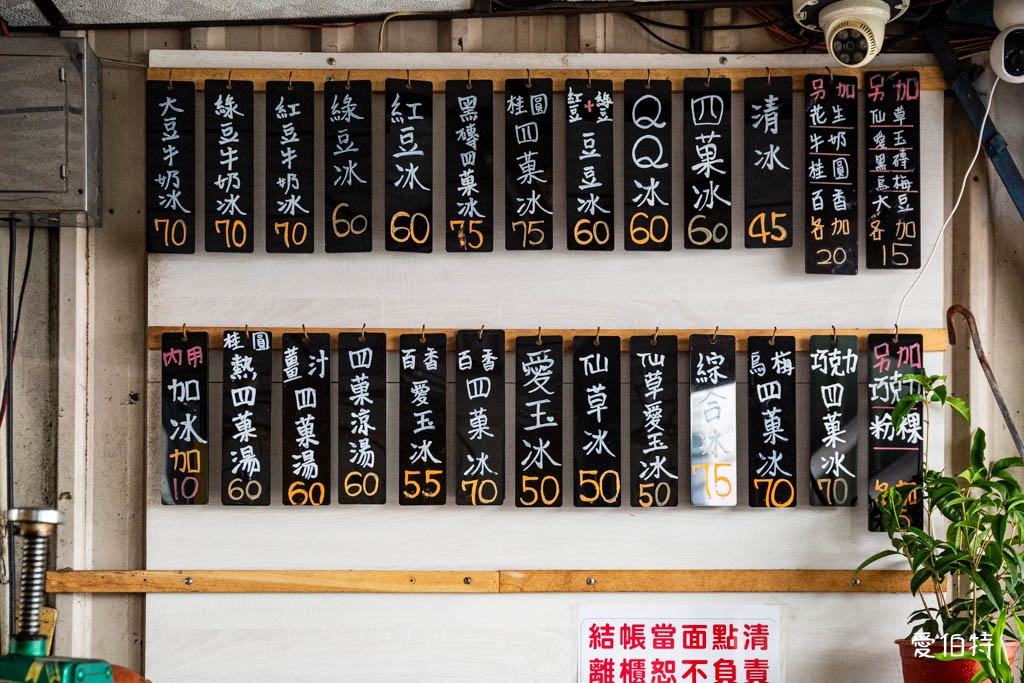 另加
仙草
愛玉
黑磚
烏梅
大豆
各加
15
另加
花生
牛奶
桂圓
百香
各加
20
清冰
45
四菓冰
60
QQ冰
60
紅豆+綠豆
豆豆冰
60
桂圓
四菓冰
75
黑磚四菓冰
75
紅豆冰
60
綠豆冰
60
紅豆牛奶冰
70
綠豆牛奶冰
70
大豆牛奶冰
70
另加
巧克
粉粿
巧克力
四菓冰
70
烏梅
四菓冰
70
綜合冰
75
仙草愛玉冰
50
仙草冰
50
愛玉冰
50
百香
四菓冰
70
百香
愛玉冰
55
四菓涼湯
60
薑汁
四菓湯
60
桂圓
熱四菓湯
60
內用
加冰
加
10
結帳當面點清
離櫃恕不負責
愛伯特